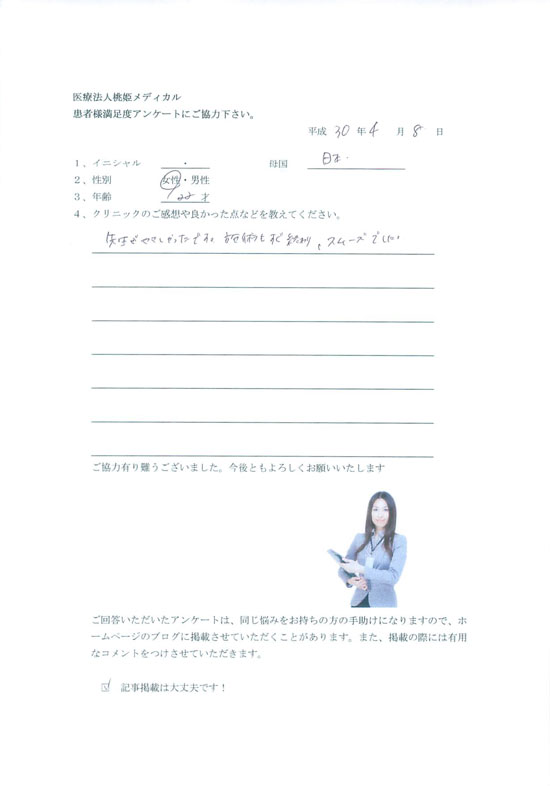 医療法人桃姫メディカル
患者様満足度アンケートにご協力下さい。
平成 30 年 4 月 8 日
1、イニシャル ・ 母国 日本
2、性別 女性・男性
3、年齢 才
4、クリニックのご感想や良かった点などを教えてください。
先生がやさしかったです。施術もすぐ終わり、スムーズでした
ご協力有り難うございました。今後ともよろしくお願いいたします
ご回答いただいたアンケートは、同じ悩みをお持ちの方の手助けになりますので、ホ
ームページのブログに掲載させていただくことがあります。また、掲載の際には有用
なコメントをつけさせていただきます。
☑ 記事掲載は大丈夫です！